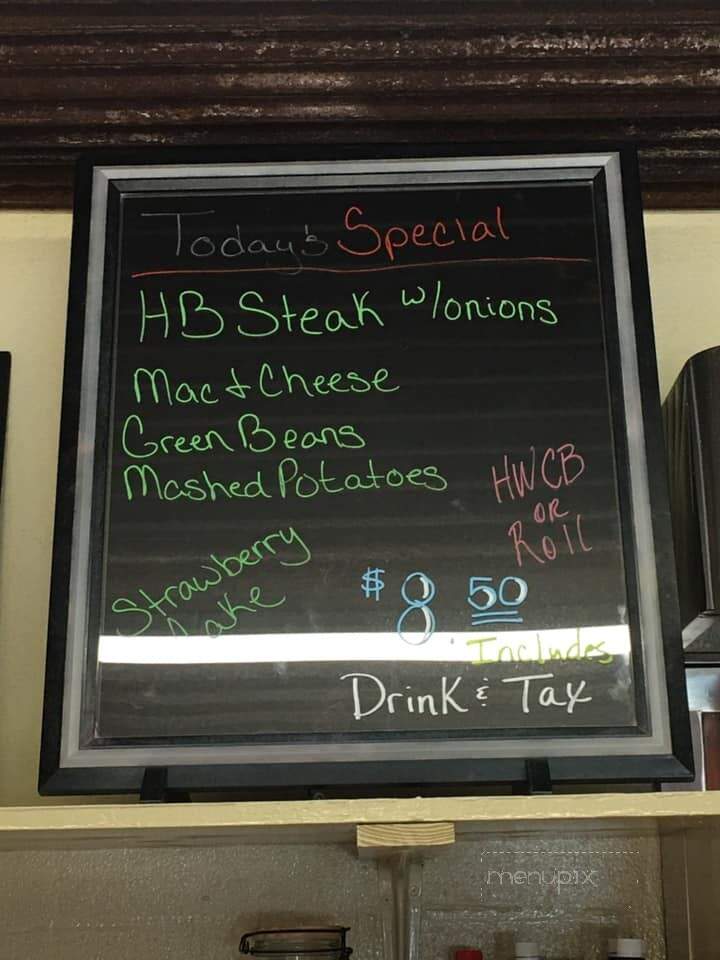 Today's Special
HB Steak w/onions
Mac & Cheese
Green Beans
Mashed Potatoes
HWCB
OR
Roll
Strawberry
Cake
$8.50
Includes
Drink & Tax
menupix